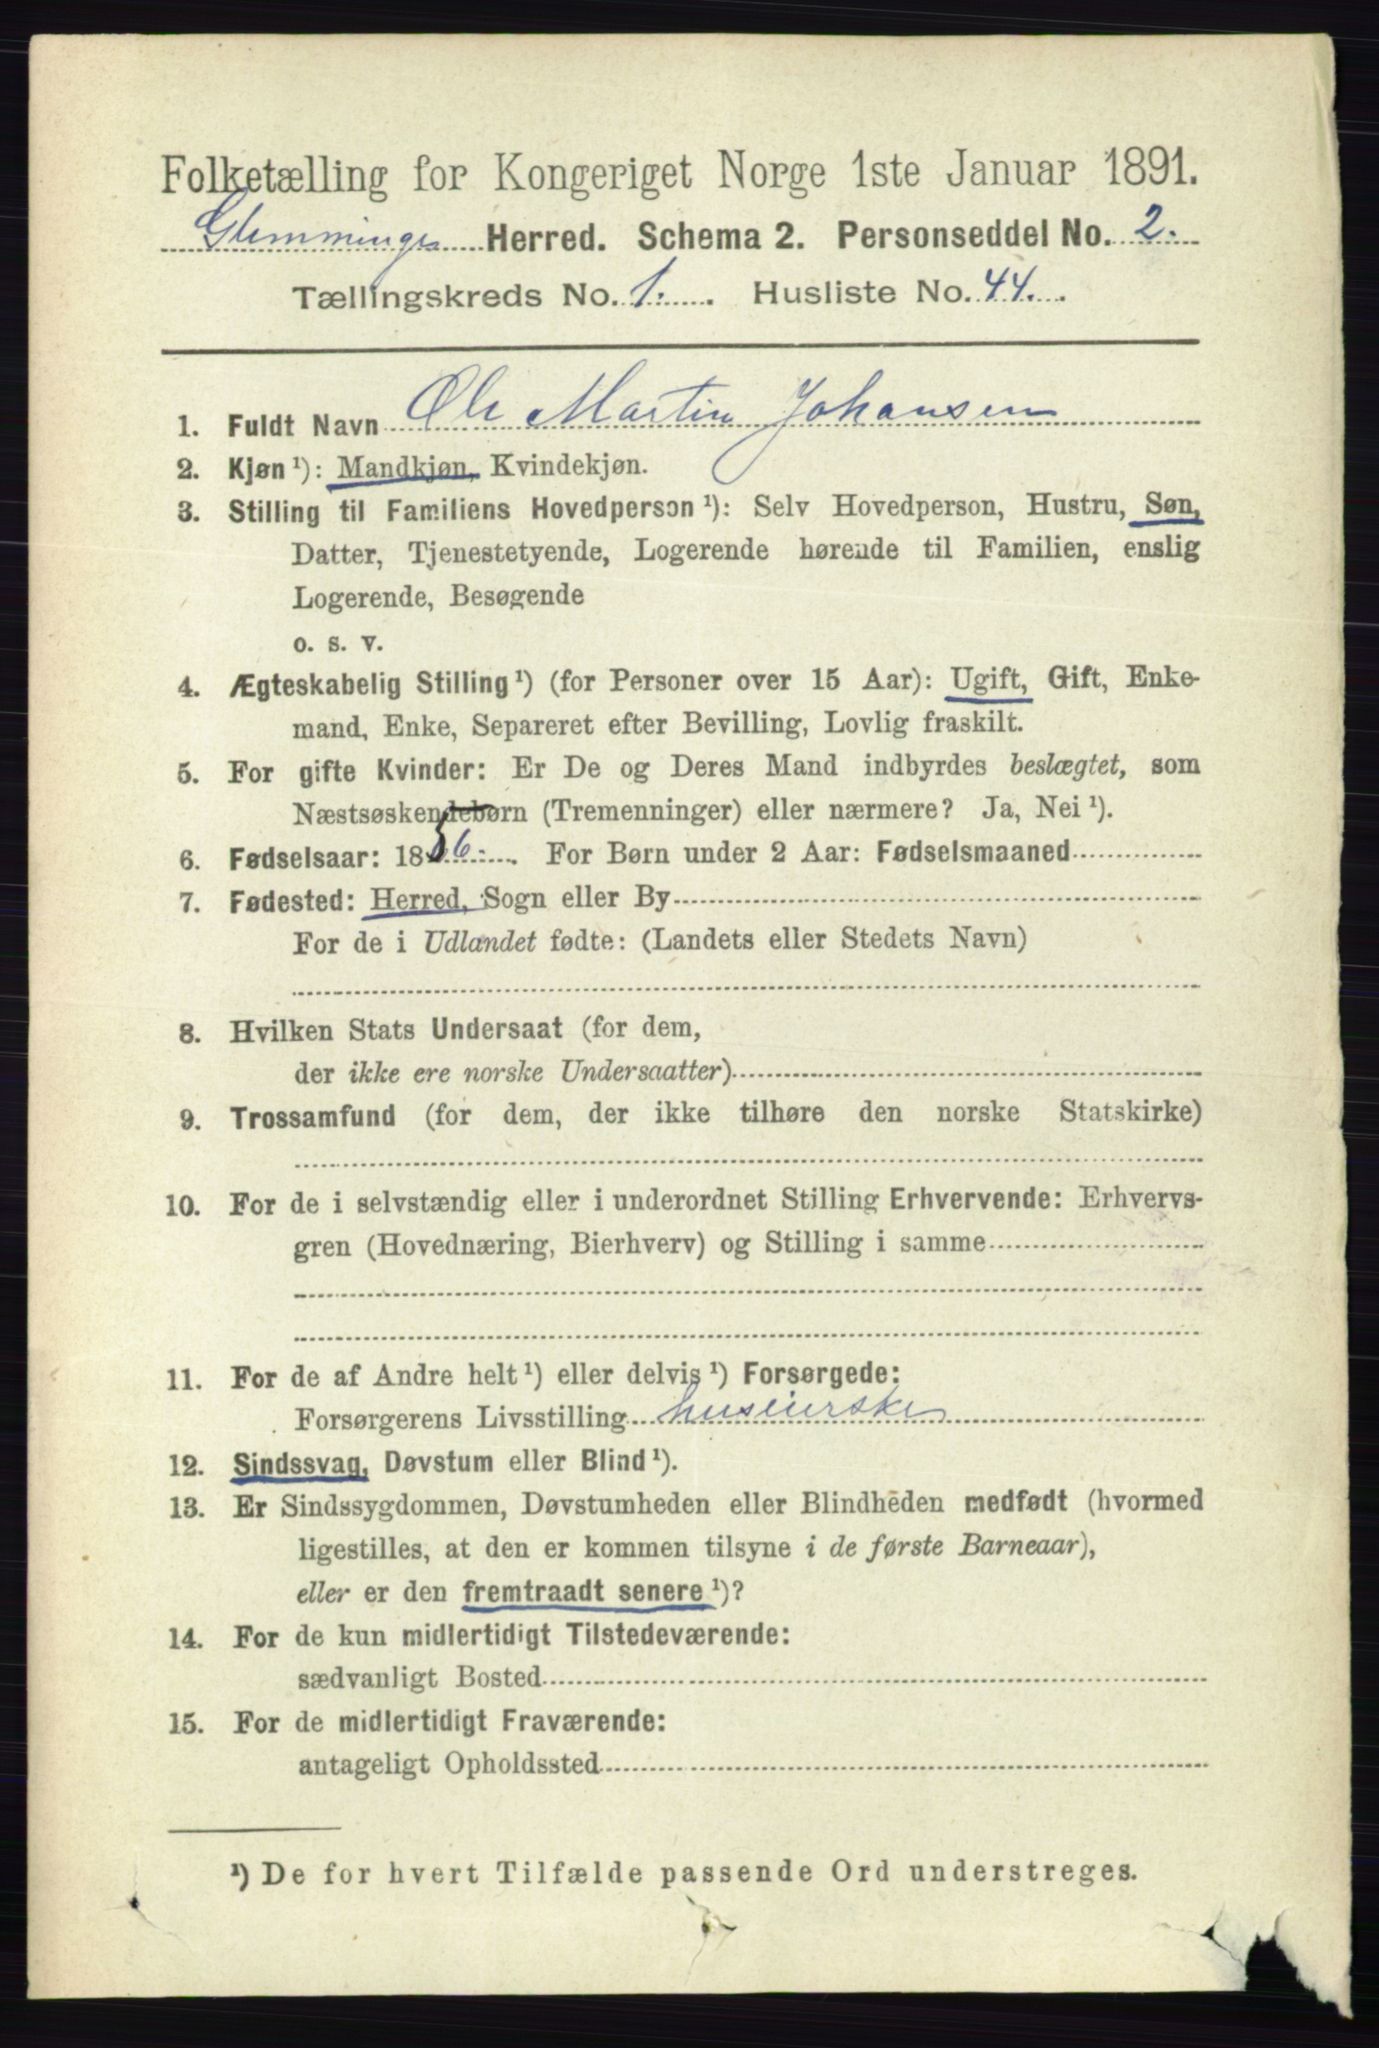 Folketælling for Kongeriget Norge 1ste Januar 1891.
Glemminge Herred. Schema 2. Personseddel No. 2.
Tællingskreds No. 1. Husliste No. 44.
1. Fuldt Navn Ole Martin Johansen
2. Kjøn ¹): Mandkjøn, Kvindekjøn.
3. Stilling til Familiens Hovedperson ¹): Selv Hovedperson, Hustru, Søn,
Datter, Tjenestetyende, Logerende hørende til Familien, enslig
Logerende, Besøgende
o. s. v.
4. Ægteskabelig Stilling ¹) (for Personer over 15 Aar): Ugift, Gift, Enke-
mand, Enke, Separeret efter Bevilling, Lovlig fraskilt.
5. For gifte Kvinder: Er De og Deres Mand indbyrdes beslægtet, som
Næstsøskendebørn (Tremenninger) eller nærmere? Ja, Nei ¹).
6. Fødselsaar: 1856. For Børn under 2 Aar: Fødselsmaaned
7. Fødested: Herred, Sogn eller By
For de i Udlandet fødte: (Landets eller Stedets Navn)
8. Hvilken Stats Undersaat (for dem,
der ikke ere norske Undersaatter)
9. Trossamfund (for dem, der ikke tilhøre den norske Statskirke)
10. For de i selvstændig eller i underordnet Stilling Erhvervende: Erhvervs-
gren (Hovednæring, Bierhverv) og Stilling i samme
11. For de af Andre helt ¹) eller delvis ¹) Forsørgede:
Forsørgerens Livsstilling huseierske
12. Sindssvag, Døvstum eller Blind ¹).
13. Er Sindssygdommen, Døvstumheden eller Blindheden medfødt (hvormed
ligestilles, at den er kommen tilsyne i de første Barneaar),
eller er den fremtraadt senere ¹)?
14. For de kun midlertidigt Tilstedeværende:
sædvanligt Bosted
15. For de midlertidigt Fraværende:
antageligt Opholdssted
¹) De for hvert Tilfælde passende Ord understreges.